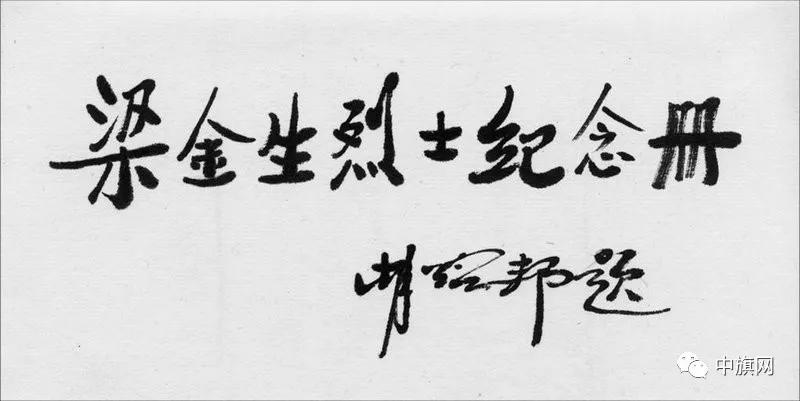 梁金生烈士纪念册
胡 邦题
中旗网